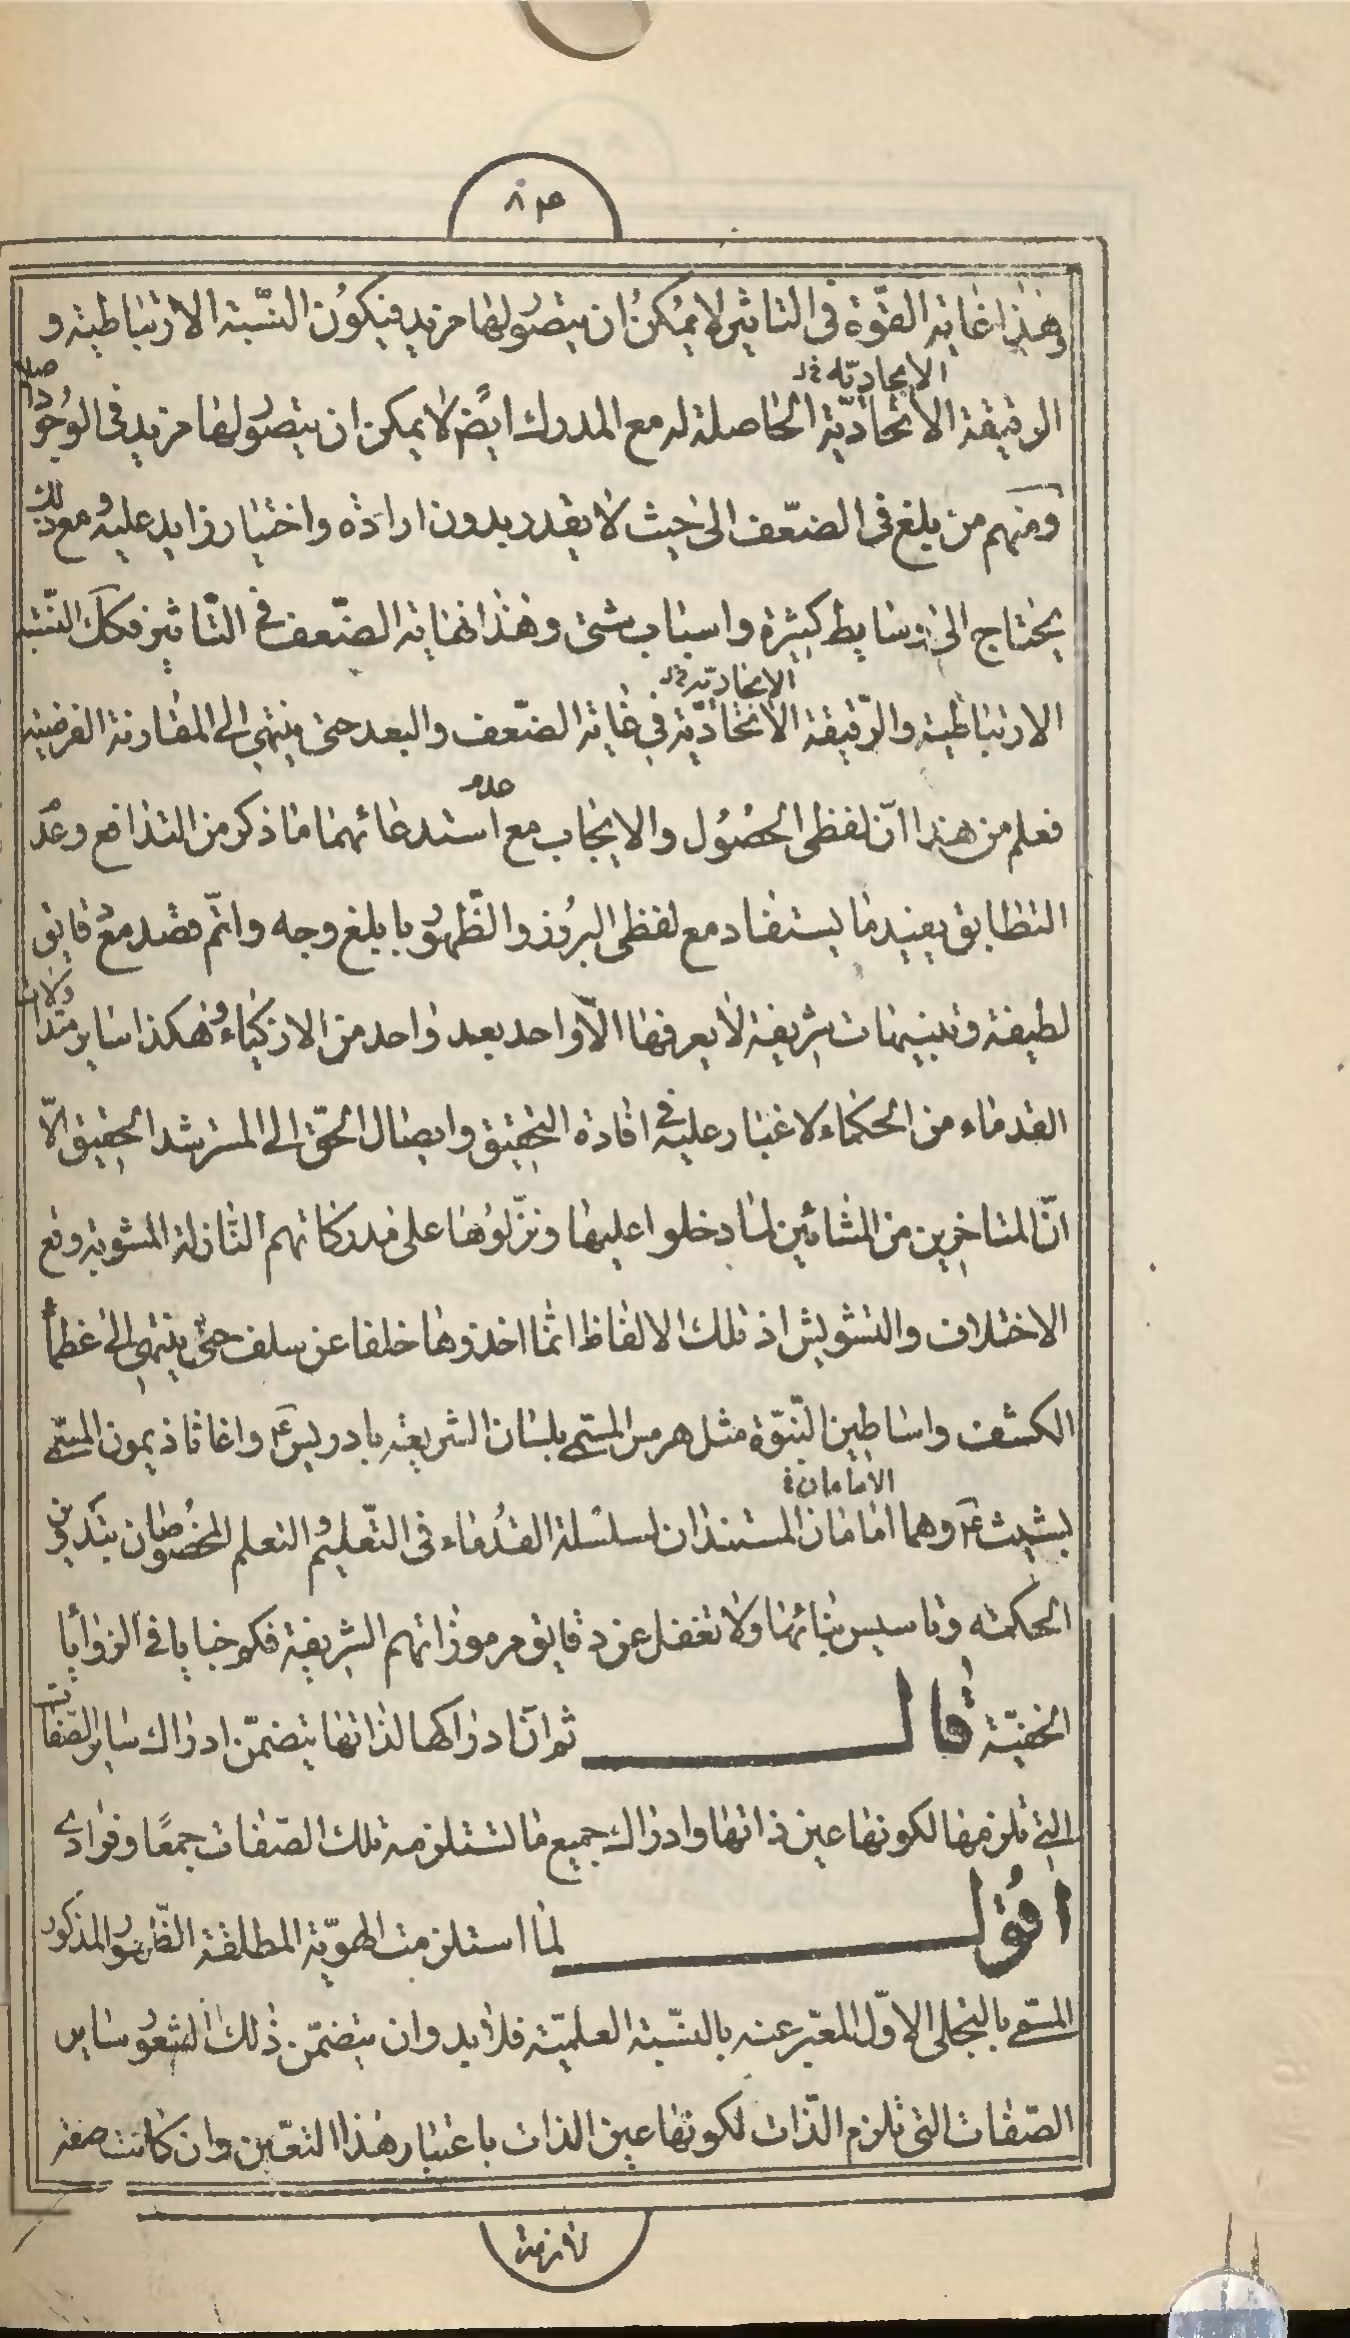 وهذا غاية القوّة فى التاثير لا يمكن ان يتصور لها مزيد فيكون النسّبة الارتباطية و
الايجاديّه خ‌ل
الرقيقة الاتحاديّة الحاصلة له مع المدرك ايضً لا يمكن ان يتصور لها مزيد فى الوجود اصلا
ومنهم من بلغ فى الضّعف الى حيث لا يقدر بدون ارادة واختيار زايد عليه ومع ذلك
يحتاج الى وسايط كثيرة واسباب شتى وهذا نهاية الضّعف فى التّاثير فكك النّسبة
الايجاديّة خ‌ل
الارتباطية والرّقيقة الاتحاديّة فى غاية الضّعف والبعد حتى ينتهى الى المقارنة الفرضية
عدم
فعلم من هذا انّ لفظى الحصول والايجاب مع استدعائهما ما ذكر من التدافع وعدم
التطابق يفيد ما يستفاد مع لفظى البروز والظّهور بابلغ وجه واتمّ قصد مع دقايق
لطيفة وتنبيهات شريفة لا يعرفها الّا واحد بعد واحد من الازكياء وهكذا ساير متداولات
القدماء من الحكماء لا غبار عليه فى افادة التحقيق وايصال الحقّ الى المسترشد الحقيق الّا
انّ المتاخرين من المشائين لما دخلوا عليها ونزّلوها على مدركاتهم النازلة المشوبة وقع
الاختلاف والتشويش اذ تلك الالفاظ انما اخذوها خلفا عن سلف حتى ينتهى الى عظماء
الكشف واساطين النّبوّة مثل هرمس المسمّى بلسان الشريعة بادريس ع واغاثاذيمون المسمّى
الامامان خ
بشيث ع وهما امامان المستندان لسلسلة القدماء فى التّعليم والتعلم المخصوصان بتدوين
الحكمة وتاسيس بنائها ولا تغفل عن دقايق مرموزاتهم الشريفة فكم خبايا فى الزوايا
الخفيّة قال ثم انّ ادراكها لذاتها يتضمّن ادراك ساير الصّفات
التى تلزمها لكونها عين ذاتها وادراك جميع ما تستلزمه تلك الصّفات جمعًا وفرادى
اقول لمّا استلزمت الهويّة المطلقة الظّهور المذكور
المسمّى بالتجلى الاوّل المعبّر عنه بالنسّبة العلميّة فلا بد وان يتضمّن ذلك الشعور ساير
الصّفات التى تلزم الذّات لكونها عين الذات باعتبار هذا التعّين وان كانت صفة
لازمة